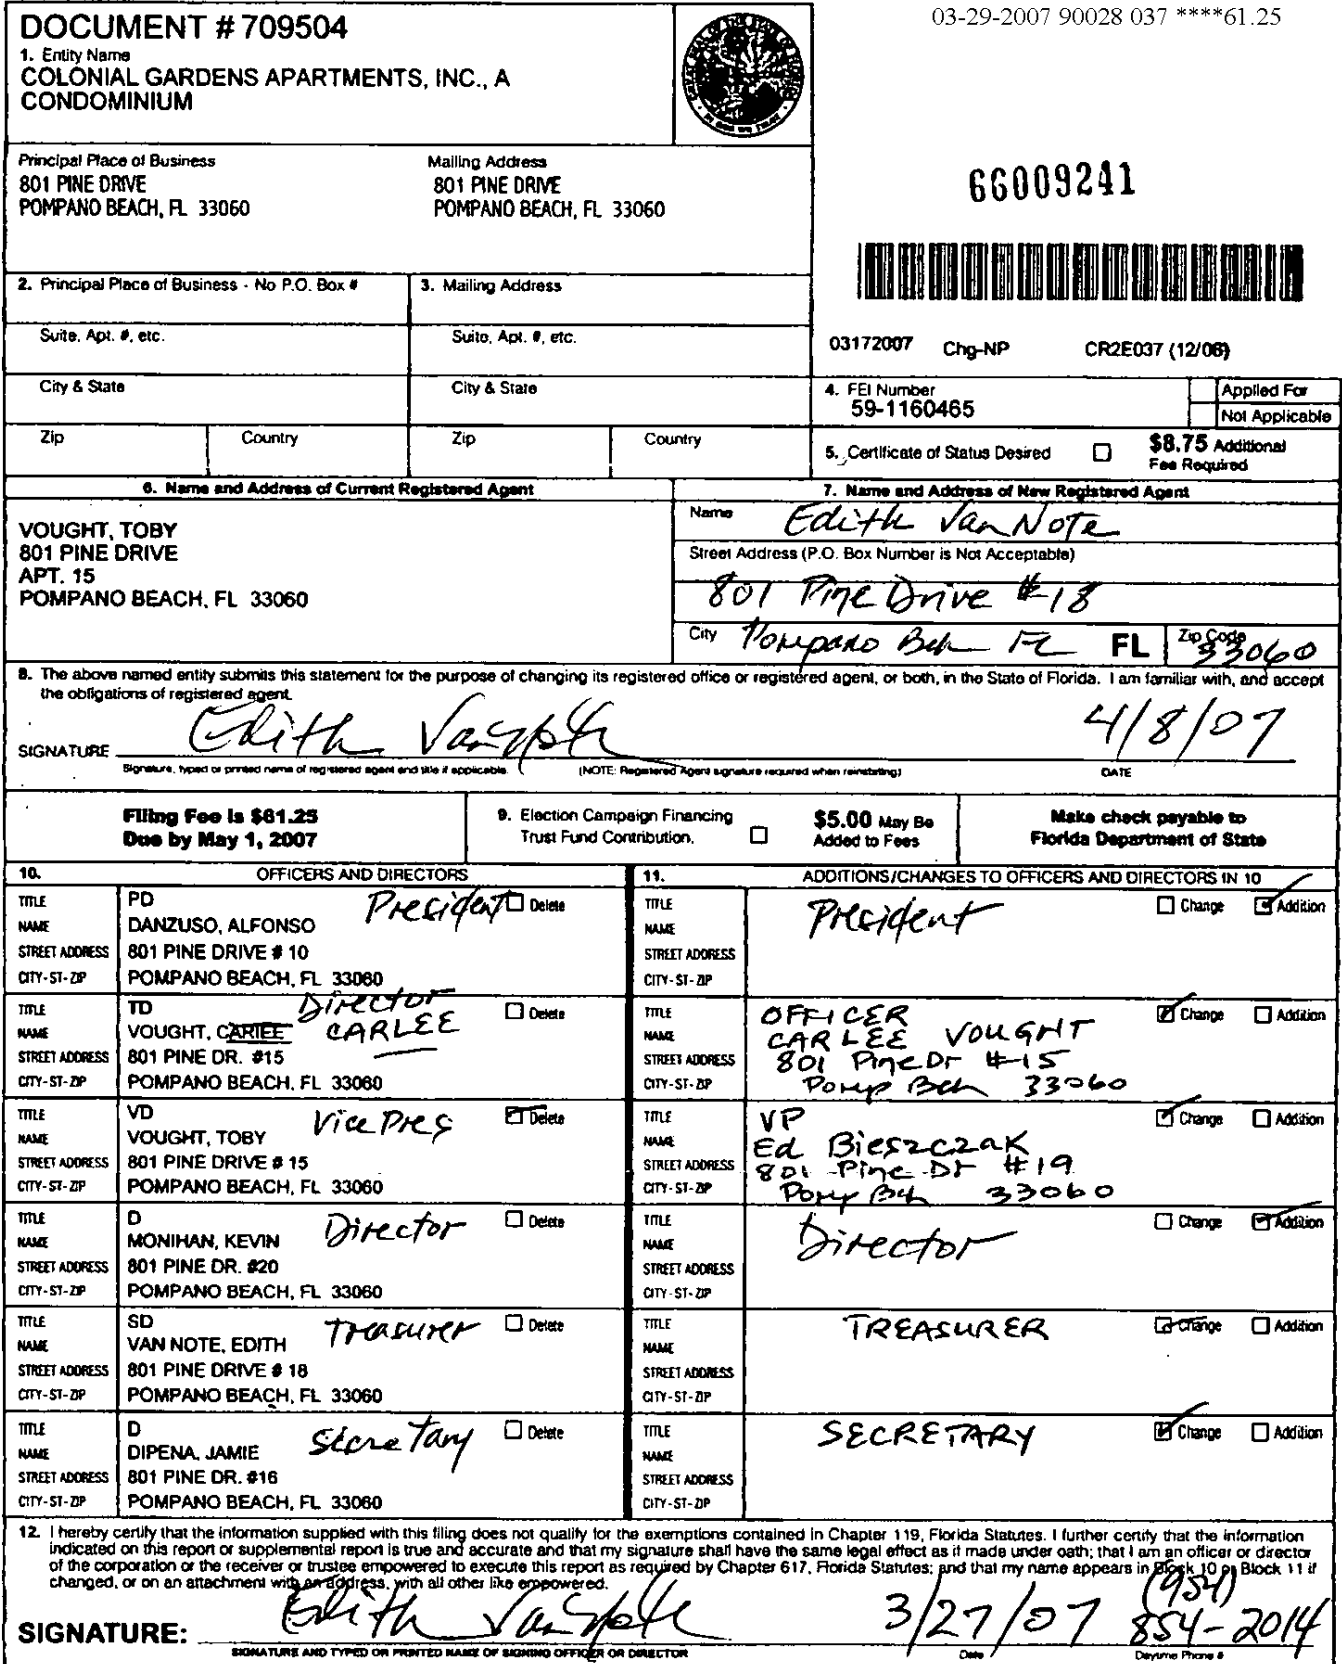 03-29-2007 90028 037 ****61.25
DOCUMENT # 709504
1. Entity Name
COLONIAL GARDENS APARTMENTS, INC., A
CONDOMINIUM
Principal Place of Business
801 PINE DRIVE
POMPANO BEACH, FL 33060
Mailing Address
801 PINE DRIVE
POMPANO BEACH, FL 33060
66009241
2. Principal Place of Business - No P.O. Box #
3. Mailing Address
Suite, Apt. #, etc.
Suite, Apt. #, etc.
03172007 Chg-NP CR2E037 (12/06)
City & State
City & State
4. FEI Number
59-1160465
Applied For
Not Applicable
Zip
Country
Zip
Country
5. Certificate of Status Desired
$8.75 Additional
Fee Required
6. Name and Address of Current Registered Agent
VOUGHT, TOBY
801 PINE DRIVE
APT. 15
POMPANO BEACH, FL 33060
7. Name and Address of New Registered Agent
Name Edith Van Note
Street Address (P.O. Box Number is Not Acceptable)
801 Pine Drive #18
City Pompano Bch FL FL Zip Code 33060
8. The above named entity submits this statement for the purpose of changing its registered office or registered agent, or both, in the State of Florida. I am familiar with, and accept
the obligations of registered agent.
SIGNATURE Edith Van Note 4/8/07
Signature, typed or printed name of registered agent and title if applicable. (NOTE: Registered Agent signature required when reinstating) DATE
Filing Fee is $61.25
Due by May 1, 2007
9. Election Campaign Financing
Trust Fund Contribution.
$5.00 May Be
Added to Fees
Make check payable to
Florida Department of State
10. OFFICERS AND DIRECTORS
11. ADDITIONS/CHANGES TO OFFICERS AND DIRECTORS IN 10
TITLE PD President Delete
NAME DANZUSO, ALFONSO
STREET ADDRESS 801 PINE DRIVE # 10
CITY-ST-ZIP POMPANO BEACH, FL 33060
TITLE President Change Addition
NAME
STREET ADDRESS
CITY-ST-ZIP
TITLE TD Director Delete
NAME VOUGHT, CARTEE CARLEE
STREET ADDRESS 801 PINE DR. #15
CITY-ST-ZIP POMPANO BEACH, FL 33060
TITLE OFFICER Change Addition
NAME CARLEE VOUGHT
STREET ADDRESS 801 Pine Dr #15
CITY-ST-ZIP Pomp Bch 33060
TITLE VD Vice Pres Delete
NAME VOUGHT, TOBY
STREET ADDRESS 801 PINE DRIVE # 15
CITY-ST-ZIP POMPANO BEACH, FL 33060
TITLE VP Change Addition
NAME Ed Bieszczak
STREET ADDRESS 801 Pine Dr #19
CITY-ST-ZIP Pomp Bch 33060
TITLE D Director Delete
NAME MONIHAN, KEVIN
STREET ADDRESS 801 PINE DR. #20
CITY-ST-ZIP POMPANO BEACH, FL 33060
TITLE Director Change Addition
NAME
STREET ADDRESS
CITY-ST-ZIP
TITLE SD Treasurer Delete
NAME VAN NOTE, EDITH
STREET ADDRESS 801 PINE DRIVE # 18
CITY-ST-ZIP POMPANO BEACH, FL 33060
TITLE TREASURER Change Addition
NAME
STREET ADDRESS
CITY-ST-ZIP
TITLE D Secretary Delete
NAME DIPENA, JAMIE
STREET ADDRESS 801 PINE DR. #16
CITY-ST-ZIP POMPANO BEACH, FL 33060
TITLE SECRETARY Change Addition
NAME
STREET ADDRESS
CITY-ST-ZIP
12. I hereby certify that the information supplied with this filing does not qualify for the exemptions contained in Chapter 119, Florida Statutes. I further certify that the information
indicated on this report or supplemental report is true and accurate and that my signature shall have the same legal effect as if made under oath; that I am an officer or director
of the corporation or the receiver or trustee empowered to execute this report as required by Chapter 617, Florida Statutes; and that my name appears in Block 10 or Block 11 if
changed, or on an attachment with an address, with all other like empowered.
SIGNATURE: Edith Van Note 3/27/07 (954) 854-2014
SIGNATURE AND TYPED OR PRINTED NAME OF SIGNING OFFICER OR DIRECTOR Date Daytime Phone #